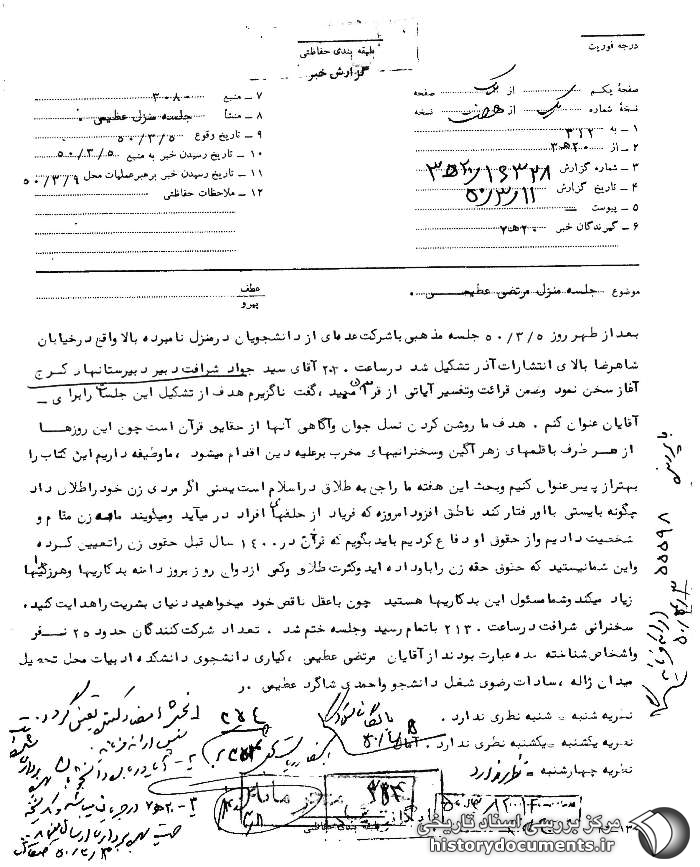 درجه فوریت
طبقه بندی حفاظتی
گزارش خبر
صفحهٔ یکم از یک صفحه
نسخهٔ شماره یک از نسخه
۱ ـ به ۳۱۲
۲ ـ از ۲۰ه۳
۳ ـ شماره گزارش
۴ ـ تاریخ گزارش ۵۰/۳/۱۱
۵ ـ پیوست ـ
۶ ـ گیرندگان خبر ۲۰ه۷
۷ ـ منبع ۳۰۸۰
۸ ـ منشأ جلسه منزل عظیمی .
۹ ـ تاریخ وقوع ۵۰/۳/۵
۱۰ ـ تاریخ رسیدن خبر به منبع ۵۰/۳/۵
۱۱ ـ تاریخ رسیدن خبر برهبر عملیات محل ۵۰/۳/۹
۱۲ ـ ملاحظات حفاظتی
موضوع جلسه منزل مرتضی عظیمی .
عطف
پیرو
بعد از ظهر روز ۵۰/۳/۵ جلسه مذهبی باشرکت عدهای از دانشجویان درمنزل نامبرده بالا واقع درخیابان
شاهرضا بالای انتشارات آذر تشکیل شد درساعت ۲۰۳۰ آقای سید جواد شرافت دبیر دبیرستانهای کرج
آغاز سخن نمود وضمن قرائت وتفسیر آیاتی از قرآن مجید ،گفت ناگزیرم هدف از تشکیل این جلسات رابرای ـ
آقایان عنوان کنم . هدف ما روشن کردن نسل جوان وآگاهی آنها از حقایق قرآن است چون این روزهــا
از هــر طرف باقلمهای زهر آگین وسخنرانیهای مخرب برعلیه دین اقدام میشود ،ماوظیفه داریم این کتاب را
بهتراز پیس عنوان کنیم وبحث این هفته ما راجع به طلاق دراسلام است یعنی اگر مردی زن خودراطلاق داد
چگونه بایستی بااور فتار کند ناطق افزود امروزه که فریاد از حلقهای افراد در میآید ومیگویند مابه زن مقام و
شخصیت دادیم واز حقوق او دفاع کردیم باید بگویم که قرآن در۱۴۰۰ سال قبل حقوق زن راتعیین کــرده
واین شمانیستید که حقوق حقه زن راباوداده اید وکثرت طلاق وکمی ازدواج روز بروز دامنه بدکاریها وهرزگیها را
زیاد میکند وشما مسئول این بدکاریها هستید چون باعقل ناقص خود میخواهید دنیای بشریت راهدایت کنید.
سخنرانی شرافت درساعت ۲۱۳۰ باتمام رسید وجلسه ختم شد . تعداد شرکت کنندگان حدود ۲۵ نفــر
واشخاص شناخته شده عبارت بودند از آقایان مرتضی عظیمی ،کیاری دانشجوی دانشکده ادبیات محل تحصیل
میدان ژاله ،سادات رضوی شغل دانشجو واحمدی شاگرد عظیمی .
نظریه شنبه ـ شنبه نظری ندارد .
نظریه یکشنبه ـ یکشنبه نظری ندارد .
نظریه چهارشنبه ـ نظری ندارد
طبقه بندی حفاظتی
مرکز بررسی اسناد تاریخی
historydocuments.ir